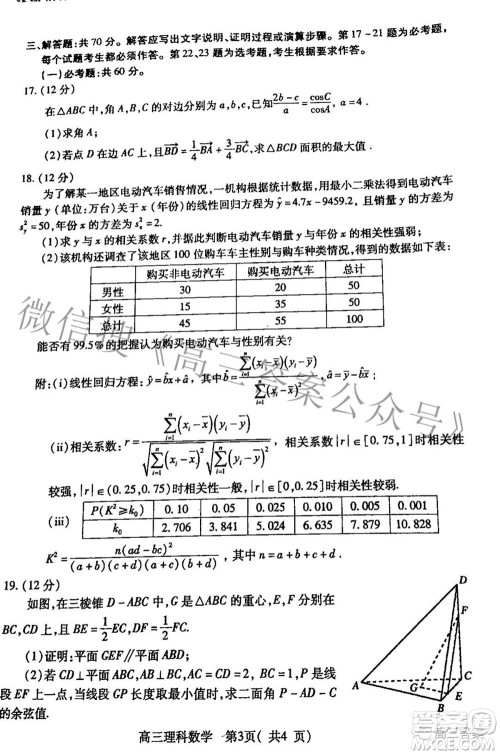 三、解答题：共 70 分。解答应写出文字说明、证明过程或演算步骤。第 17～21 题为必考题，
每个试题考生都必须作答。第 22、23 题为选考题，考生根据要求作答。
（一）必考题：共 60 分。
17.(12 分)
在△ABC 中，角 A，B，C 的对边分别为 a，b，c，已知 (2b-c)/a = cosC/cosA，a=4.
(1)求角 A；
(2)若点 D 满足 BD = 1/4 BA + 3/4 BC，求△BCD 面积的最大值.
18.(12 分)
为了解某一地区电动汽车销售情况，一机构根据统计数据，用最小二乘法得到电动汽车
销量 y(单位：万台)关于 x(年份)的线性回归方程为 ŷ=4.7x-9459.2，且销量 y 的方差为
s_y²=50，年份 x 的方差为 s_x²=2.
(1)求 y 与 x 的相关系数 r，并据此判断电动汽车销量 y 与年份 x 的相关性强弱；
(2)该机构还调查了该地区 100 位购车车主性别与购车种类情况，得到的数据如下表：
购买非电动汽车 购买电动汽车 总计
男性 30 20 50
女性 15 35 50
总计 45 55 100
能否有 99.5%的把握认为购买电动汽车与性别有关？
附：(i)线性回归方程：ŷ=b̂x+â，其中 b̂ = ∑(x_i-x̄)(y_i-ȳ) / ∑(x_i-x̄)²，
(ii)相关系数：r = ∑(x_i-x̄)(y_i-ȳ) / √∑(x_i-x̄)² √∑(y_i-ȳ)²，相关系数 |r|∈[0.75,1]时相关性
较强，|r|∈(0.25,0.75)时相关性一般，|r|∈[0,0.25]时相关性较弱.
(iii)
P(K²≥k₀) 0.10 0.05 0.025 0.010 0.005 0.001
k₀ 2.706 3.841 5.024 6.635 7.879 10.828
K² = n(ad-bc)² / (a+b)(c+d)(a+c)(b+d)，其中 n=a+b+c+d
19.(12 分)
如图，在三棱锥 D-ABC 中，G 是△ABC 的重心，E，F 分别在
BC，CD 上，且 BE = 1/2 EC，DF = 1/2 FC.
(1)证明：平面 GEF∥平面 ABD；
(2)若 CD⊥平面 ABC，AB⊥BC，AC=2CD=2，P 是线
段 EF 上一点，当线段 GP 长度取最小值时，求二面角 P-AD-C
的余弦值.
D
F
A
G
C
E
B
高三理科数学 第3页（共4 页）
微信搜《高三答案公众号》
高三答案